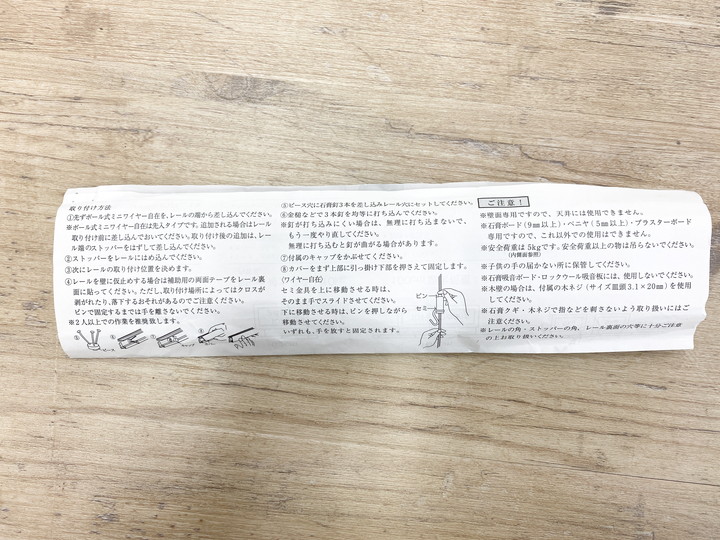 取り付け方法
①先ずボール式ミニワイヤー自在を、レールの端から差し込んでください。
※ボール式ミニワイヤー自在は先入タイプです。追加される場合はレール
取り付け前に差し込んでおいてください。取り付け後の追加は、レー
ル端のストッパーをはずして差し込んでください。
②ストッパーをレールにはめ込んでください。
③次にレールの取り付け位置を決めます。
④レールを壁に仮止めする場合は補助用の両面テープをレール裏
面に貼ってください。ただし、取り付け場所によってはクロスが
剥がれたり、落下するおそれがあるのでご注意ください。
ピンで固定するまでは手を離さないでください。
※2人以上での作業を推奨致します。
ピース
キャップ
⑤ピース穴に石膏釘3本を差し込みレール穴にセットしてください。
⑥金槌などで3本釘を均等に打ち込んでください。
※釘が打ち込みにくい場合は、無理に打ち込まないで、
もう一度やり直してください。
無理に打ち込むと釘が曲がる場合があります。
⑦付属のキャップをかぶせてください。
⑧カバーをまず上部に引っ掛け下部を押さえて固定します。
(ワイヤー自在)
セミ金具を上に移動させる時は、
そのまま手でスライドさせてください。
下に移動させる時は、ピンを押しながら
移動させてください。
いずれも、手を放すと固定されます。
ピン
セミ
ご注意!
※壁面専用ですので、天井には使用できません。
※石膏ボード(9㎜以上)・ベニヤ(5㎜以上)・プラスターボード
専用ですので、これ以外での使用はできません。
※安全荷重は5kgです。安全荷重以上の物は吊らないでください。
(内側面参照)
※子供の手の届かない所に保管してください。
※石膏吸音ボード・ロックウール吸音板には、使用しないでください。
※木壁の場合は、付属の木ネジ(サイズ皿頭3.1×20㎜)を使用
してください。
※石膏タギ・木ネジで指などを刺さないよう取り扱いにはご
注意ください。
※レールの角・ストッパーの角、レール裏面の穴等に十分ご注意
の上お取り扱いください。